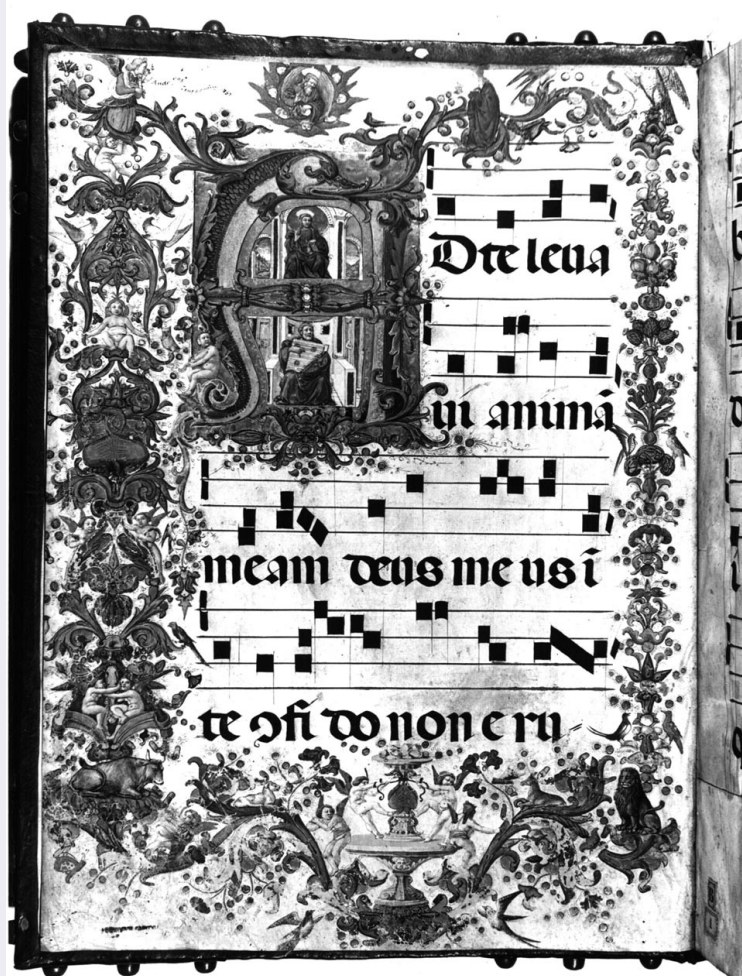 AD te leva
vi animā
meam deus meus ī
te ↄfido non eru